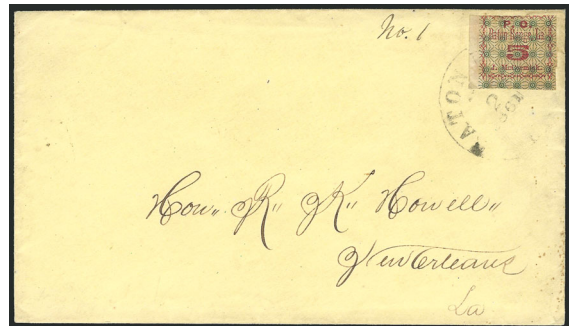 No. 1
P. O.
Baton Rouge, La.
5
J. McCormick.
ATON
NOV
Hon. R. K. Howell.
New Orleans
La